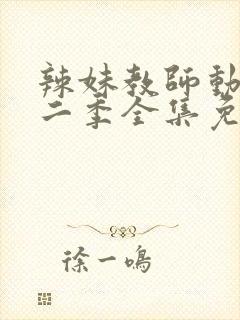 辣妹教師動
二季全集免
徐一鳴